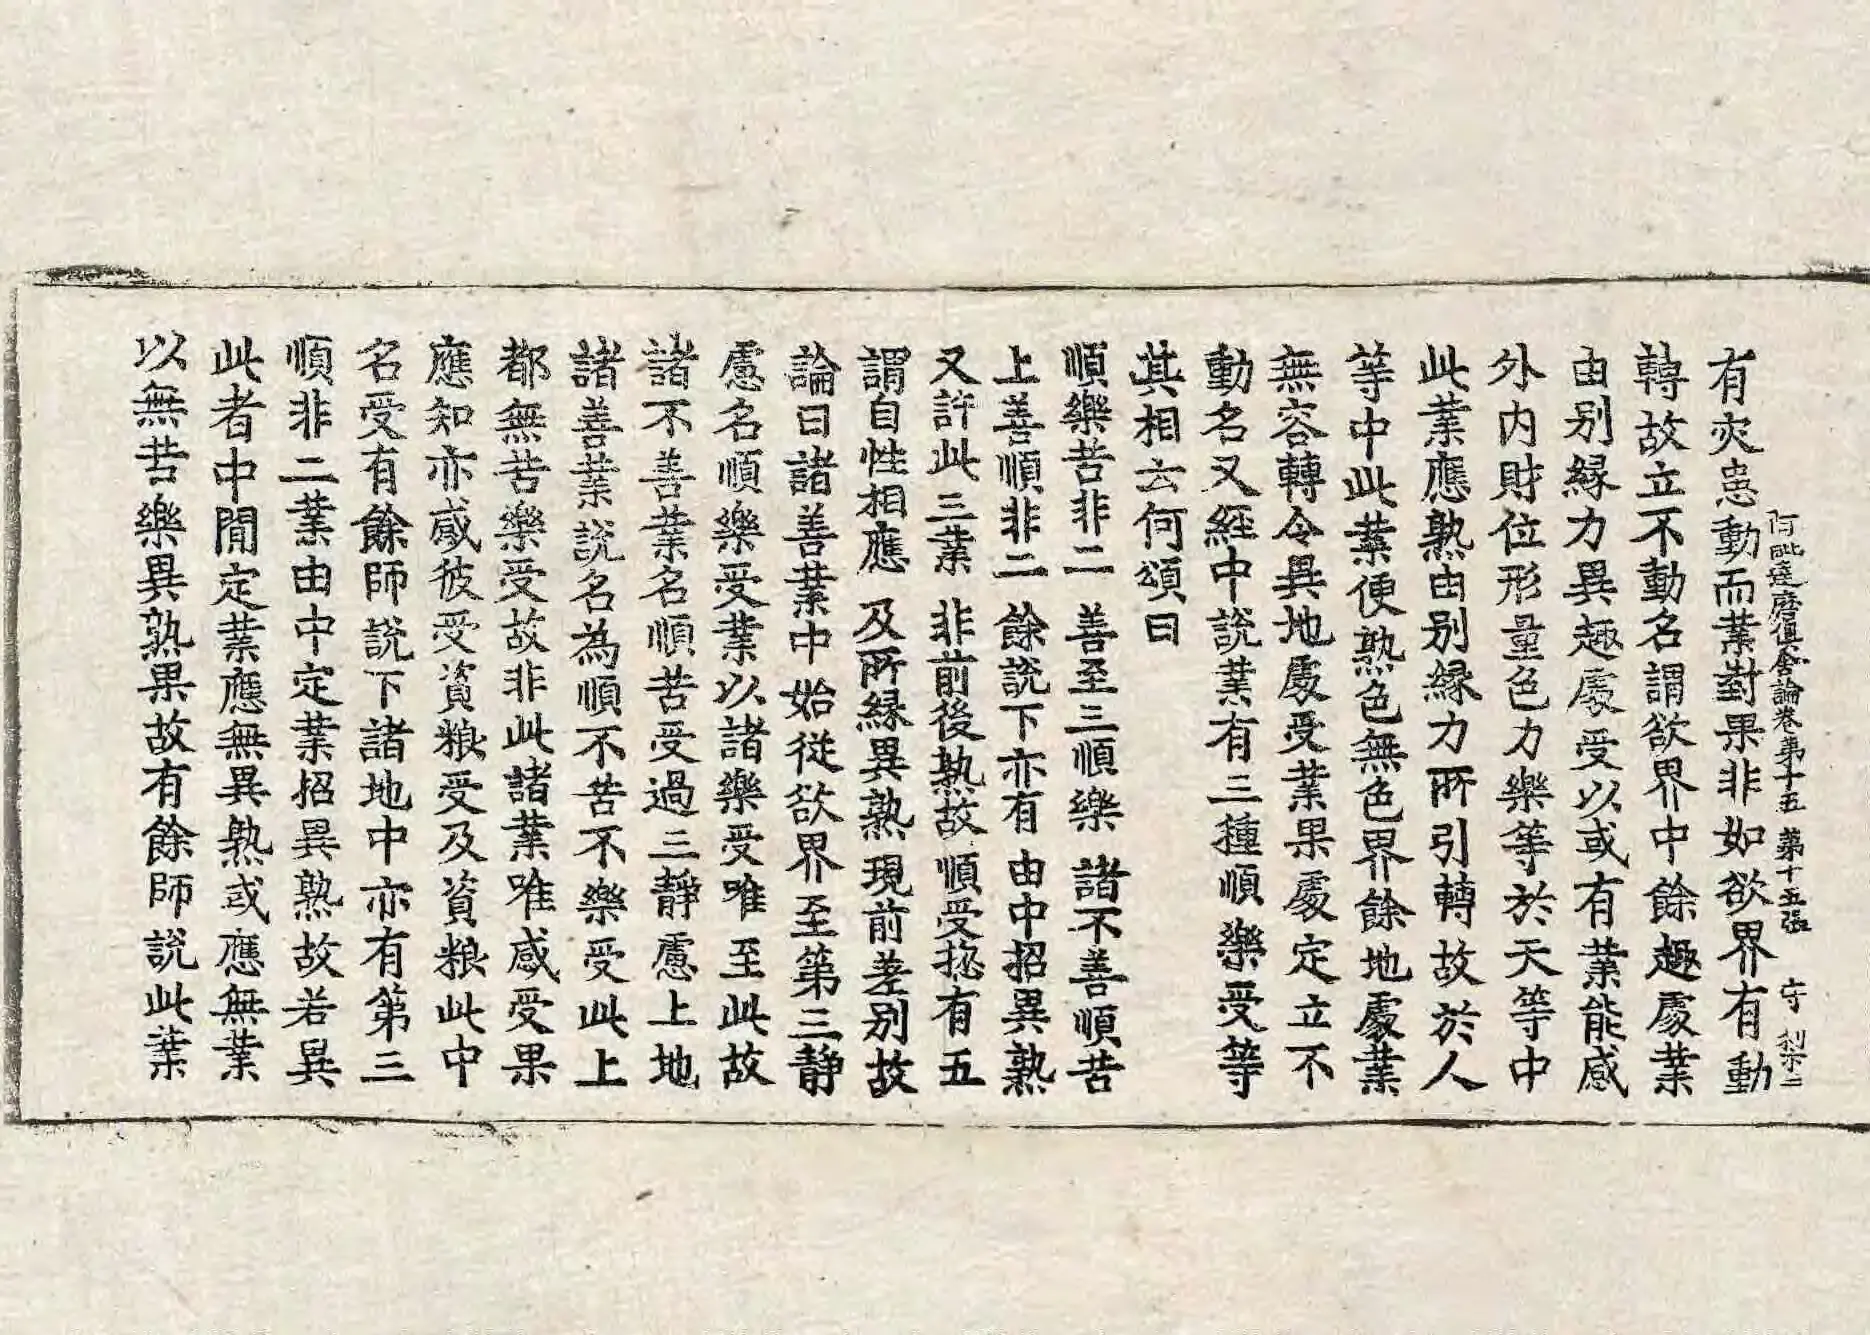 阿毗達磨俱舍論卷第十五 第十五張 守
有灾患動而業對果非如欲界有動
轉故立不動名謂欲界中餘趣處業
由別緣力異趣處受以或有業能感
外內財位形量色力樂等於天等中
此業應熟由別緣力所引轉故於人
等中此業便熟色無色界餘地處業
無容轉令異地處受業果處定立不
動名又經中說業有三種順樂受等
其相云何頌曰
順樂苦非二 善至三順樂 諸不善順苦
上善順非二 餘說下亦有 由中招異熟
又許此三業 非前後熟故 順受捴有五
謂自性相應 及所緣異熟 現前差別故
論曰諸善業中始從欲界至第三靜
慮名順樂受業以諸樂受唯至此故
諸不善業名順苦受過三靜慮上地
諸善業說名為順不苦不樂受此上
都無苦樂受故非此諸業唯感受果
應知亦感彼受資粮受及資粮此中
名受有餘師說下諸地中亦有第三
順非二業由中定業招異熟故若異
此者中間定業應無異熟或應無業
以無苦樂異熟果故有餘師說此業